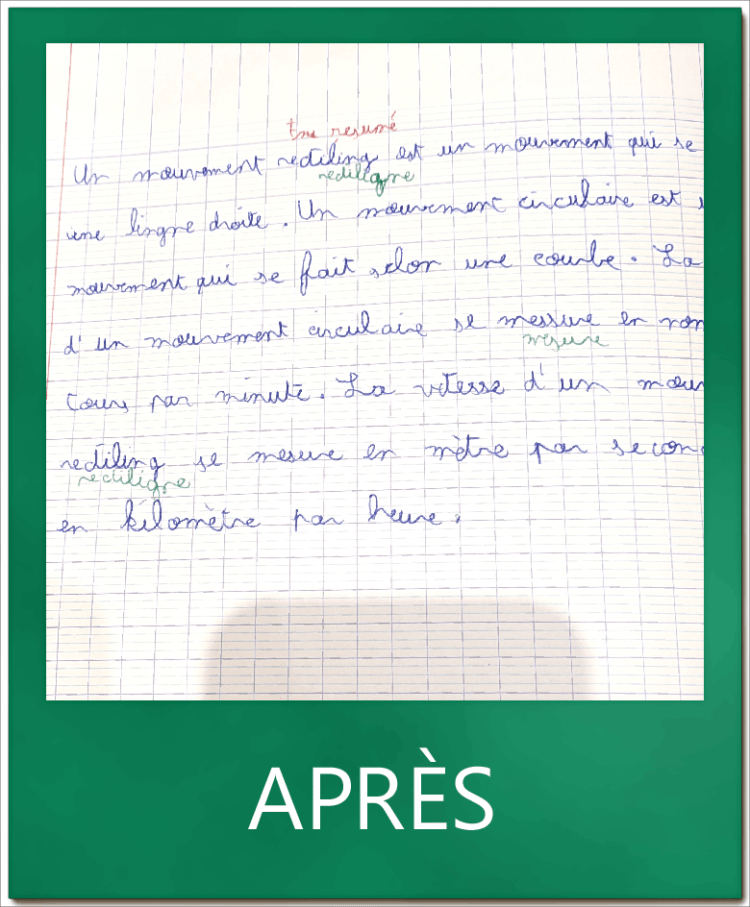 En resumé
Un mouvement rediling est un mouvement qui se
rediligne
une lingne droite. Un mouvement circulaire est
mouvement qui se fait selon une courbe. La
d'un mouvement circulaire se messure en nom
mesure
tours par minute. La vitesse d'un mouv
rediling se mesure en mètre par secon
rediligne
en kilomètre par heure.
APRÈS